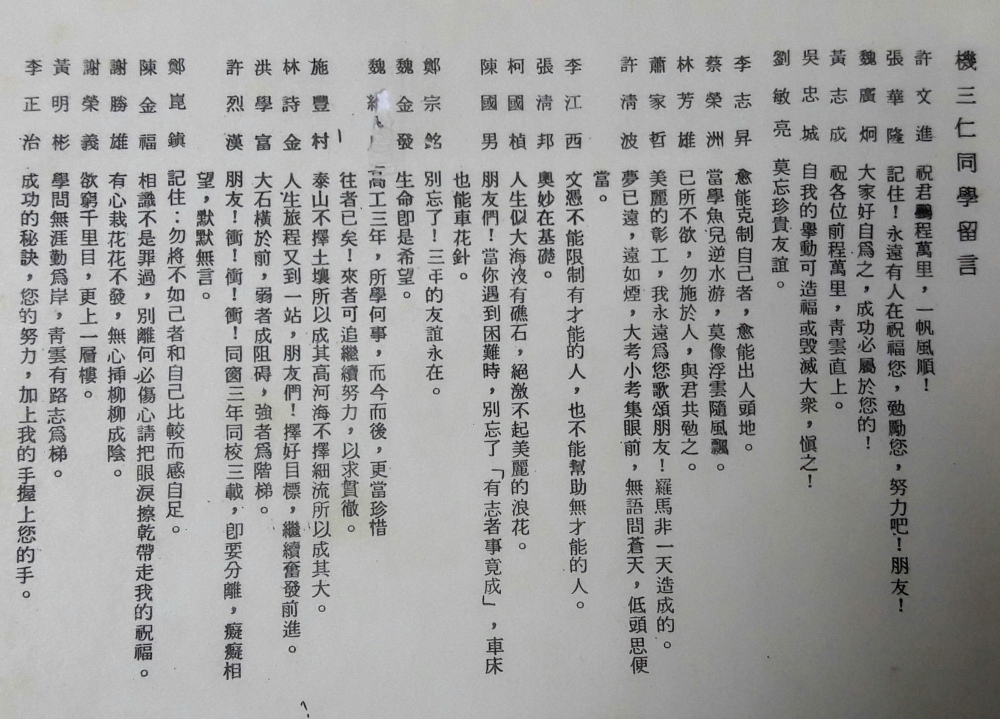 機三仁同學留言
許文進 祝君鵬程萬里，一帆風順！
張華隆 記住！永遠有人在祝福您，勉勵您，努力吧！朋友！
魏廣炯 大家好自爲之，成功必屬於您的！
黃志成 祝各位前程萬里，靑雲直上。
吳忠城 自我的舉動可造福或毀滅大衆，愼之！
劉敏亮 莫忘珍貴友誼。
李志昇 愈能克制自己者，愈能出人頭地。
蔡榮洲 當學魚兒逆水游，莫像浮雲隨風飄。
林芳雄 己所不欲，勿施於人，與君共勉之。
蕭家哲 美麗的彰工，我永遠爲您歌頌朋友！羅馬非一天造成的。
許淸波 夢已遠，遠如煙，大考小考集眼前，無語問蒼天，低頭思便
當。
李江西 文憑不能限制有才能的人，也不能幫助無才能的人。
張淸邦 奧妙在基礎。
柯國楨 人生似大海沒有礁石，絕激不起美麗的浪花。
陳國男 朋友們！當你遇到困難時，別忘了「有志者事竟成」，車床
也能車花針。
鄭宗銘 別忘了！三年的友誼永在。
魏金發 生命卽是希望。
魏 高工三年，所學何事，而今而後，更當珍惜
往者已矣！來者可追繼續努力，以求貫徹。
施豐村 泰山不擇土壤所以成其高河海不擇細流所以成其大。
林詩金 人生旅程又到一站，朋友們！擇好目標，繼續奮發前進。
洪學富 大石橫於前，弱者成阻碍，強者爲階梯。
許烈漢 朋友！衝！衝！衝！同窗三年同校三載，卽要分離，癡癡相
望，默默無言。
鄭崑鎭 記住：勿將不如己者和自己比較而感自足。
陳金福 相識不是罪過，別離何必傷心請把眼淚擦乾帶走我的祝福。
謝勝雄 有心栽花花不發，無心揷柳柳成陰。
謝榮義 欲窮千里目，更上一層樓。
黃明彬 學問無涯勤爲岸，靑雲有路志爲梯。
李正治 成功的秘訣，您的努力，加上我的手握上您的手。